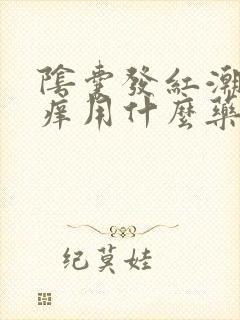 陰囊發紅潮
痒用什麼藥
纪莫娃